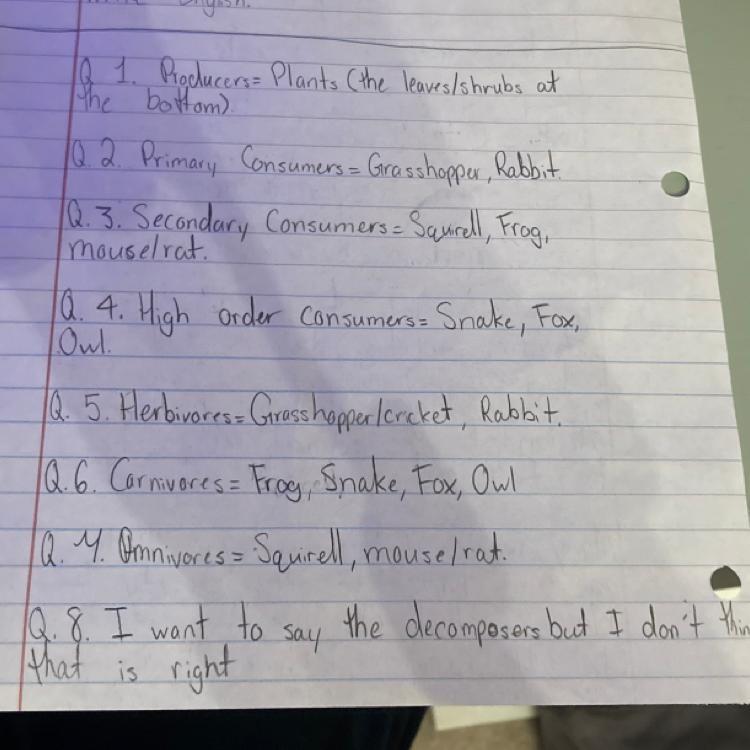 English.
Q 1. Producers= Plants (the leaves/shrubs at
the bottom)
Q.2. Primary Consumers= Grasshopper, Rabbit.
Q.3. Secondary Consumers= Squirell, Frog,
mouse/rat.
Q.4. High order consumers= Snake, Fox,
Owl.
Q.5. Herbivores= Grasshopper/cricket, Rabbit.
Q.6. Carnivores= Frog, Snake, Fox, Owl
Q.7. Omnivores= Squirell, mouse/rat.
Q.8. I want to say the decomposers but I don't thin
that is right